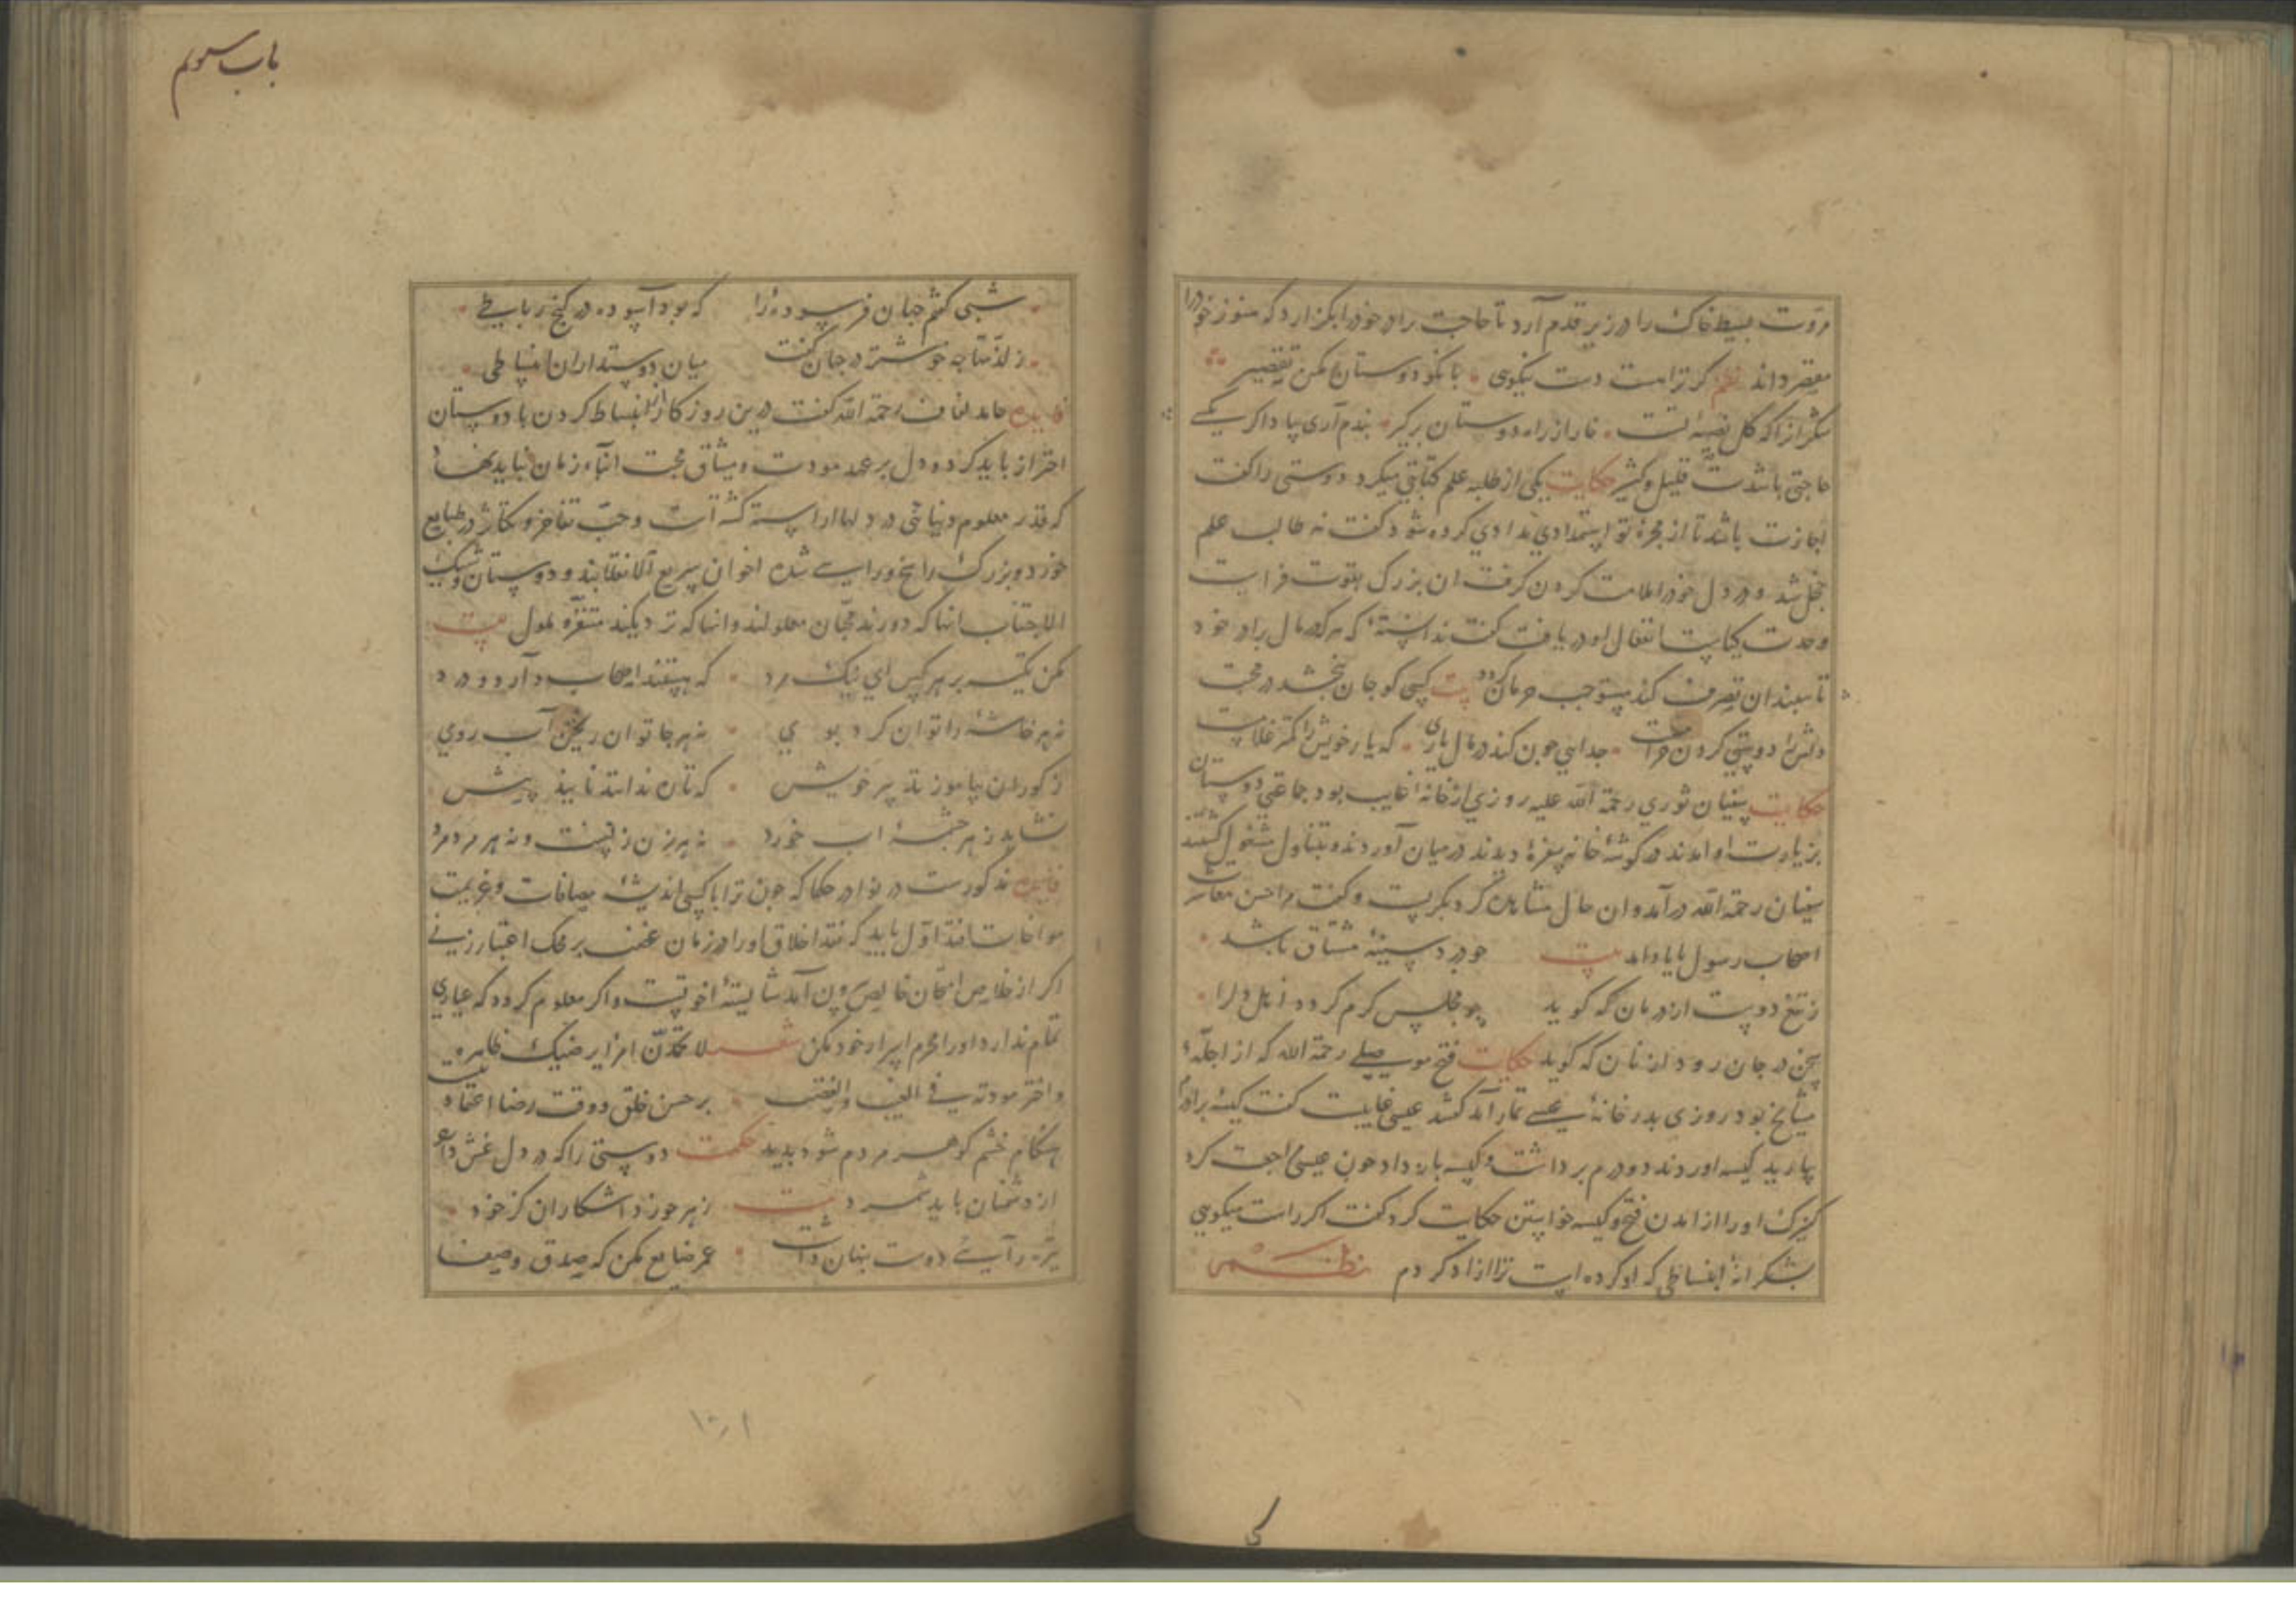 مروّت بسیط خاک را در زیر قدم آرد تا حاجت برادر خود را بگزارد که هنوز خود را
مقصر داند نظم کر ترا هست دست نیکوی با نکو دوستان مکن تقصیر
شکر آنرا که کل نصیبهٔ تست خار از راه دوستان برکیر بندم آری بپا در اکر یکی
حاجتی باشدت قلیل و کثیر حکایت یکی از طلبه علم کتابتی میکرد دوستی را کفت
اجازت باشد تا از محبرهٔ تو استمدادی بمدادی کرده شود کفت نه طالب علم
خجل شد و در دل خود را ملامت کردن کرفت ان بزرک بقوت فراست
وحدت کیاست انفعال او دریافت کفت ندانستهٔ که هرکه در مال برادر خود
تا بدان تصرف کند مستوجب حرمان کردد بیت کسی کو جان نبخشد در محبت
دلش را دوستی کردن حرامست جدایی چون کند در مال یاری که یار خویش را کمتر غلامست
حکایت سفیان ثوری رحمة الله علیه روزی از خانه غایب بود جماعتی دوستان
بزیارت او امدند در کوشهٔ خانه سفرهٔ دیدند در میان آوردند و بتناول مشغول کشتند
سفیان رحمة الله درآمد و ان حال مشاهده کرد بکریست و کفت مرا حسن معاشرت
اصحاب رسول بایاد امد بیت چو درد سینهٔ مشتاق باشد
ز تیغ دوست از درمان که کوید چو مجلس کرم کردد از اهل دلرا
سخن در جان رود از نان که کوید حکایت فتح موصلی رحمة الله که از اجلّهٔ
مشایخ بود روزی بدر خانهٔ عیسی تمار آمد کفتند عیسی غایبست کفت کیسهٔ برادرم
بیارید کیسه اوردند دو درم برداشت و کیسه باز داد چون عیسی مراجعت کرد
کنیزک او را از امدن فتح و کیسه خواستن حکایت کرد کفت اکر راست میکویی
بشکرانهٔ انبساطی که او کرده است ترا ازاد کردم نظم
باب سوم
شبی کفتم جهان فرسوده را که بود آسوده در کنج رباطی
ز لذّتها چه خوشتر در جهان کفت میان دوستداران انبساطی
فایده حامد لفاف رحمة الله کفت درین روزکار از انبساط کردن با دوستان
احتراز باید کرد و دل بر عهد مودت و میثاق محبت ابنآء زمان نباید نهاد
که قدر معلوم دنیائی در دلها اراسته کشته است و حبّ تفاخر و تکاثر در طبایع
خورد و بزرک راسخ و راسی شده اخوان سریع الانقلابند و دوستان وشیک
الاجتناب انها که دورند محبّان معلولند و انها که نزدیکند متنفّر ملول بیت
مکن تکیه بر هر کس ای نیک مرد که هستند اصحاب دارو و درد
نه هر خاشهٔ را توان کرد بوی نه هر جا توان ریختن آب روی
ز کوران بیاموز تدبیر خویش که تا ندانند نایند پیش
نشاید ز هر چشمهٔ اب خورد نه هر زن زنست و نه هر مرد مرد
فایده مذکورست در نوادر حکما که چون ترا با کسی اندیشهٔ مصافات و عزیمت
مواخات افتد اوّل باید که نقد اخلاق او را در زمان غضب بر محک اعتبار زنی
اکر از خلاص امتحان خالص برون آمد شایستهٔ اخوتست و اکر معلوم کردد که عیاری
تمام ندارد او را محرم اسرار خود مکن شعر لا تحمدنّ امرا یرضیک ظاهره
واختبر مودته فی الغیب والغضب بیت بر حسن خلق در وقت رضا اعتماد
هنکام خشم کوهر مردم شود پدید حکمت دوستی را که در دل غش دارد
از دشمنان باید شمرد بیت زهر خوردن اشکارا از کزخود
به ز رایی دوست پنهان داشت عمر ضایع مکن که صدق و صفا
۱۰۱